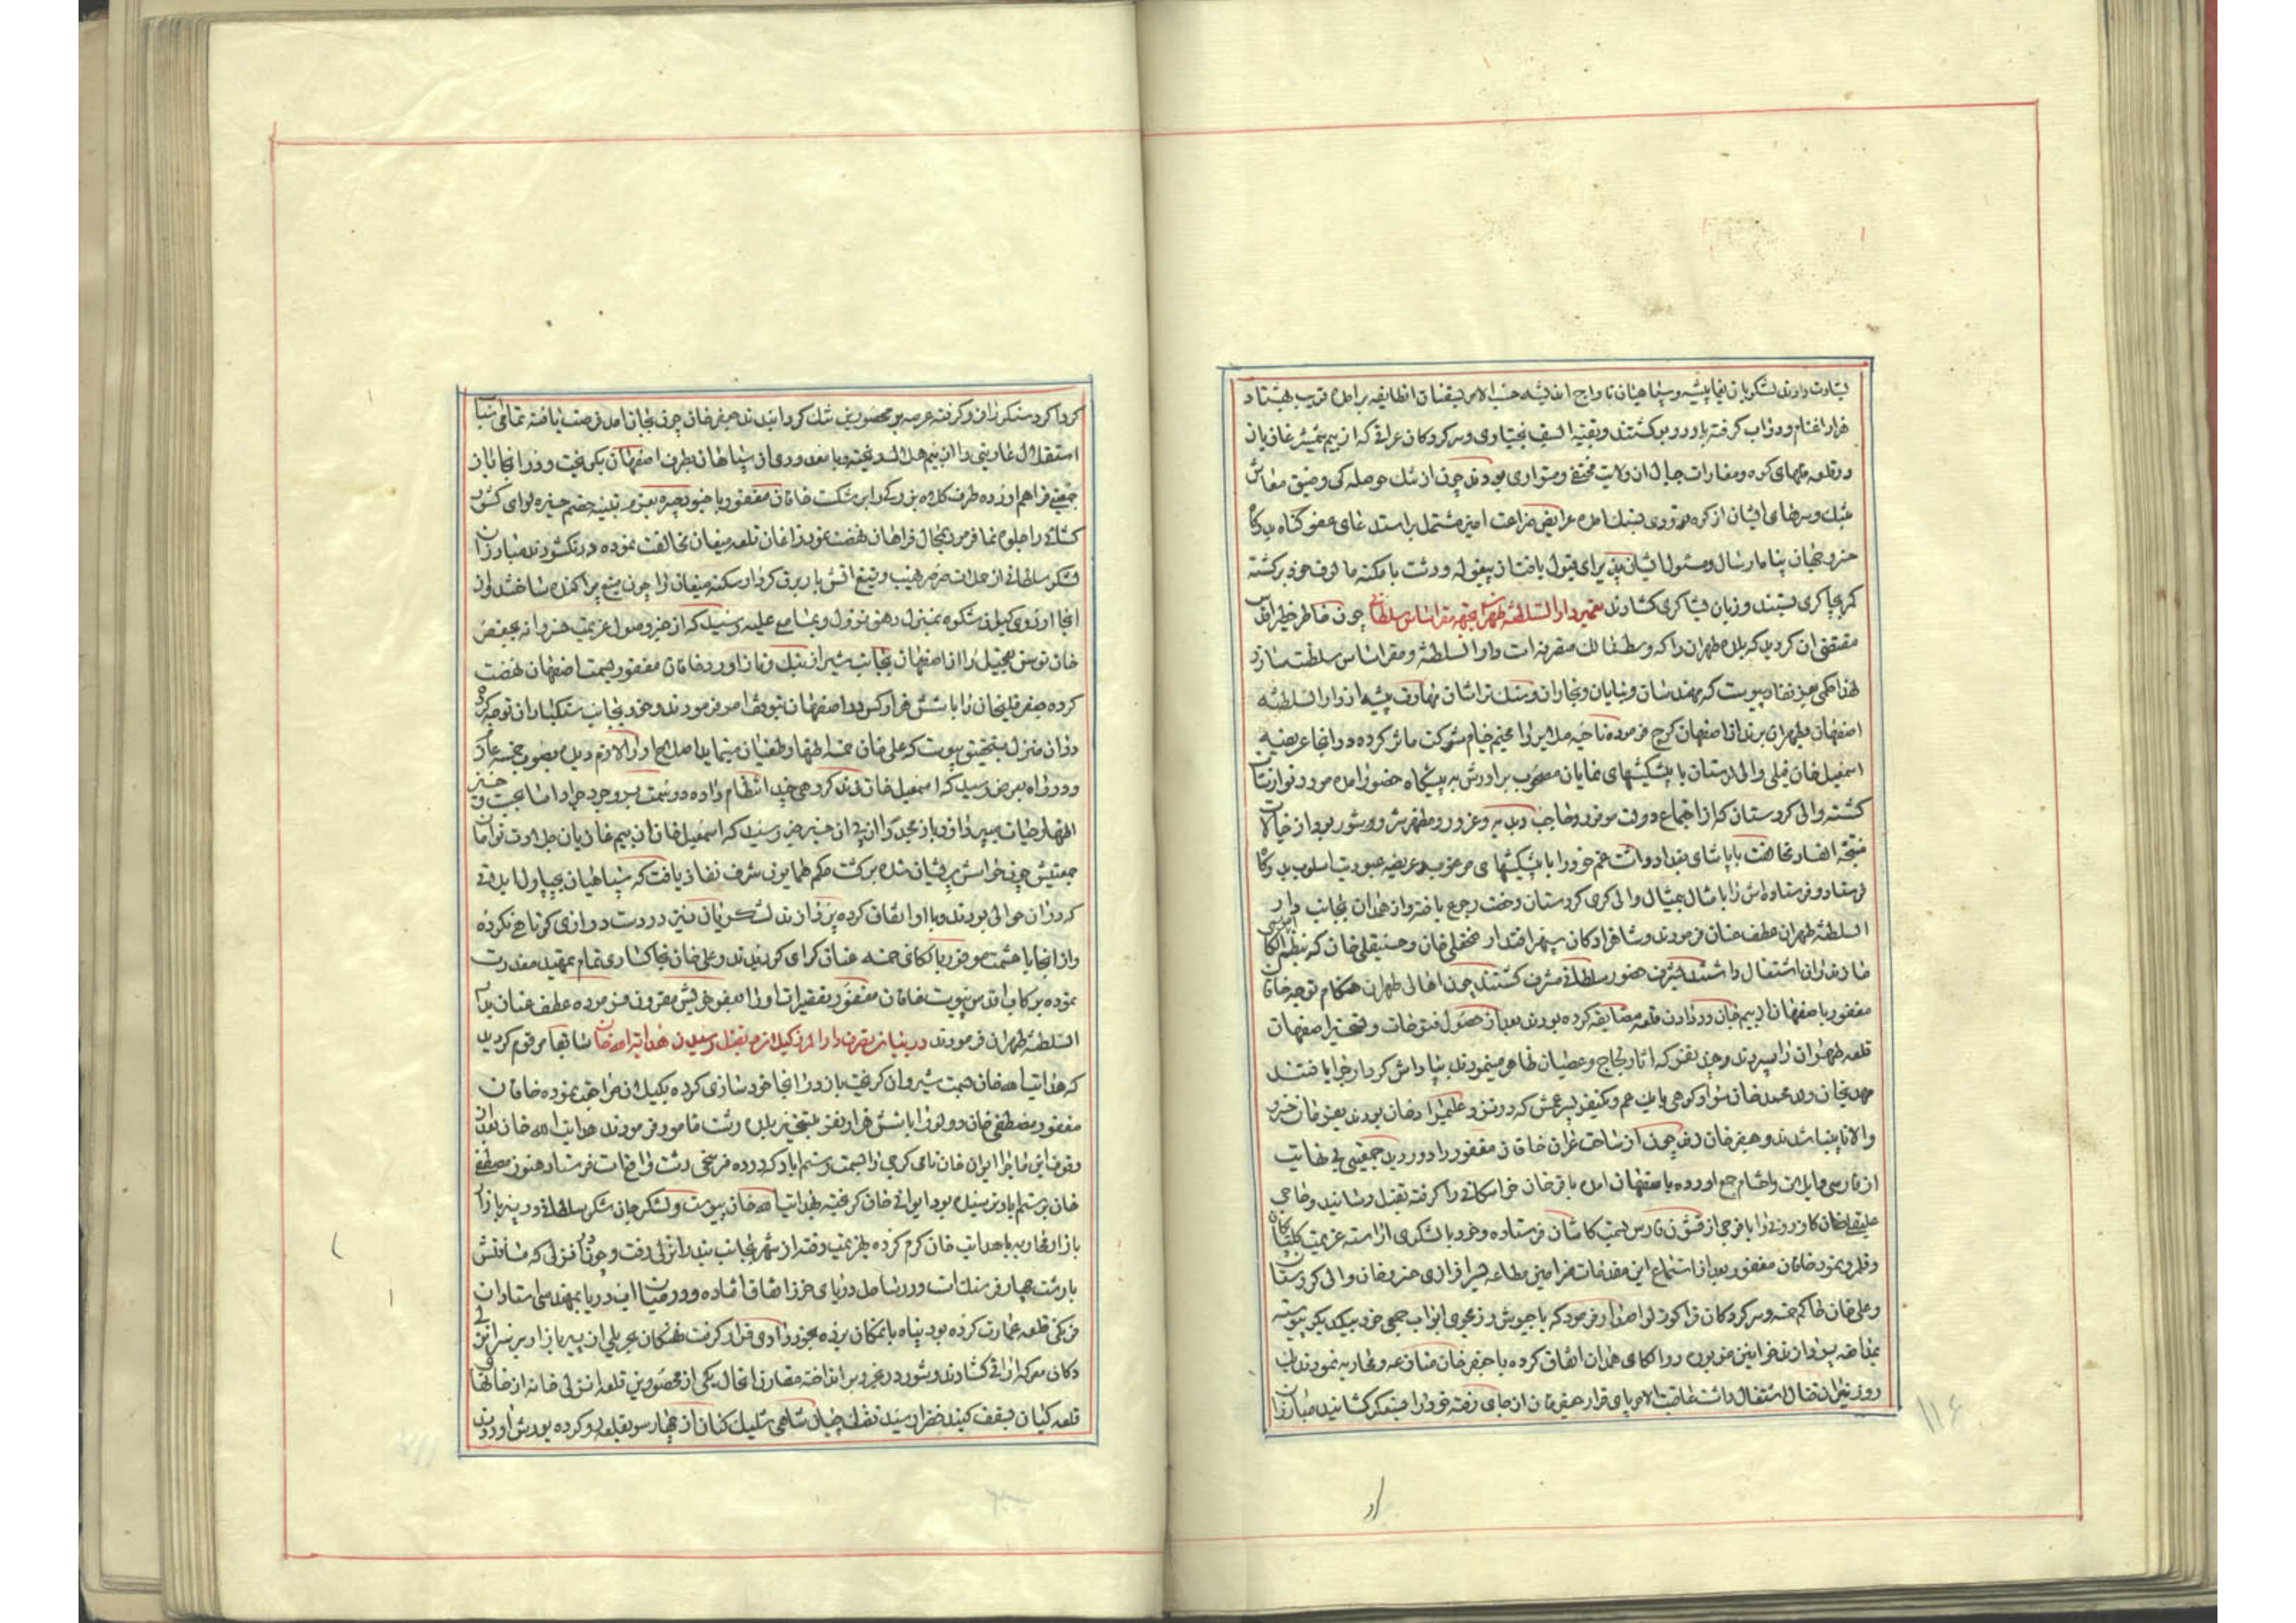 غارت دارند لشکریان یغما پیشه و سپاهیان تاراج اندیشه حسب الامر بیقنات انطایفه برامده قریب هشتاد
هزار اغنام و دواب گرفته باردو برگشتند و بقیة السیف بختیاری و سرکردگان عراقی که از بیم شمشیر غازیان
در قلعه های کوه و مغارات جبال ان ولایت مختفی و متواری بودند چون از تنک حوصله کی و ضیق معاش
بتنک و سرهای ایشان از کرده امده عرایض ضراعت امیز مشتمل بر استدعای عفو گناه بدرگاه
خسرو جهان پناه ارسال و مسئول ایشان پذیرای قبول یافت از بیغوله و دشت بامکنه مالوف خود برگشته
کمر بچاکری بستند و زبان بشاکری گشادند تعمیر دار السلطنه طهران بجهة مقر اساس سلطانی چون خاطر خطیر اقدس
مقتضی ان گردید که بلده طهران را که وسط ممالک متصرفه است دار السلطنه و مقر اساس سلطنت سازد
لهذا حکمی بعز نفاذ پیوست که مهندسان و بنایان و نجاران و سنک تراشان مهارت پیشه از دار السلطنه
اصفهان بطهران برند از اصفهان کوچ فرموده ناحیه ملایر را مخیم خیام شوکت ماثر کرده در انجا عریضه
اسمعیل خان فیلی والی لرستان با پیشکشهای نمایان مصحوب برادرش به پیشگاه حضور امده مورد نوازشات
گشته والی کردستان که از اجتماع دولت موفور و حاجب دیده و غرور و مظهر شر و شور بود از خیالات
نتیجة الفساد مخالفت با پاشای بغداد داشت عم خود را با پیشکشهای مرغوب و عریضه عبودیت اسلوب بدرگاه
فرستاد و فرستاده اش را با مثال بیمثال والی گری کردستان رخصت رجع یافته و از همدان بجانب دار
السلطنه طهران عطف عنان فرمودند و شاهزادگان سپهر اقتدار فتحعلی خان و حسینقلی خان که بنظم الکای
مازندران اشتغال داشتند بشرف حضور سلطانی مشرف گشتند چون اهالی طهران هنگام توجه خاقان
مغفور باصفهان از بیم خان در دادن قلعه مضایقه کرده بودند بعد از حصول فتوحات و تسخیر اصفهان
قلعه طهران را سپردند و چند نفر که اثار لجاج و عصیان ظاهر مینمودند بپاداش کردار جزا یافتند
مهدیخان ولد محمد خان سواد کوهی با یک عم و یکنفر پسر عمش که در نزد علیمراد خان بودند بعز خان خسرو
والا پناه شدند و جعفر خان زند چون از ساحت عراق خاقان مغفور را دور دید جمعیتی بی نهایت
از فارس و ایلات و احشام جمع اورده باصفهان امده باقر خان خراسکانی را گرفته بقتل رسانید و حاجی
علیقلیخان کازرونی را با فوجی از قشون فارس بسمت کاشان فرستاده و خود با لشکری اراسته عزیمت گلپایگان
و قلمرو نمود خاقان مغفور بعد از استماع این مقدمات فرامین مطاعه بسرافرازی خسرو خان والی کردستان
و علی خان حاکم خمسه و سرکردگان قراگوزلو اصدار فرمود که با جیوش رزمجوی ابواب جمعی خود بیکدیگر پیوسته
بمدافعه پردازند خوانین مزبوره در الکای همدان اتفاق کرده با جعفر خان منازعه و محاربه نمودند ان
روز نیران قتال اشتعال داشت عاقبت الامر پای قرار جعفر خان از جای رفته خود را بسنگر کشانید مبارزان
گرداگرد سنگر را فرو گرفته عرصه بر محصورین تنک گردانیدند جعفر خان چون بجان امد فرصت یافته تمامی اسباب
استقلال عاریتی را از بیم هلاک ریخته و با معدودی از سپاهان بطرف اصفهان بگریخت و در انجا باز
جمعیتی فراهم اورده بطرف کلاه بزرگ را بر شکست خاقان مغفور با جنود نصرت بعزم تنبیه خصم خیره لوای کشور
گشائی را جلوه نما فرمود بمحال فراهان نهضت نمود زاغان قلعه میغان مخالفت نموده در نگشودند مبارزان
لشکر سلطانی از حملات صرصر نهیب و تیغ اتش بار برق کردار سکنه میغان را چون میغ پراکنده ساختند و از
انجا اردوی گیهان شکوه بمنزل رهق نزول و بمسامع علیه رسید که از خبر وصول عزیمت خسروانه جعفر
خان توسن تعجیل را از اصفهان بجانب شیراز بتک و تاز اورد خاقان مغفور بسمت اصفهان نهضت
کرده جعفر قلیخان را با شش هزار کس در اصفهان بتوقف امر فرمودند و خود بجانب سنگباران توجه کرد
در ان منزل بتحقیق پیوست که علی خان خمسه اظهار طغیان مینماید
و در راه بعرض رسید که اسمعیل خان زند گروهی چند انتظام داده در سمت بروجرد
اظهار حیات میپردازد باز مجدداً از پی ان خبر خبر رسید که اسمعیل خان از بیم غازیان جلادت توامان
جمعیتش چون حواسش پریشان شده برگشت حکم همایون شرف نفاذ یافت که سپاهیان بچپاول ایلاتی
که در ان حوالی بودند و با او اتفاق کرده پردازند لشکریان نیز در دست درازی کوتاهی نکرده
و از انجا با حشمت موفور بالکای خمسه عنان گرای گردیدند و علی خان بخاکساری تمام بتمهید معذرت
نموده برکاب اقدس پیوست خاقان مغفور تقصیرات او را بعفو خویش مقرون فرموده عطف عنان بدار
السلطنه طهران فرمودند در بیان تصرف دار المرز گیلان و بقتل رسیدن هدایت الله خان سابقا مرقوم گردید
که هدایت الله خان بسمت شیروان گریخت باز در انجا خود سازی کرده بگیلان مراجعت نموده خاقان
مغفور مصطفی خان دولو را با شش هزار نفر بتسخیر بلده رشت مامور فرمودند هدایت الله خان بعد از
وقوف این ماجرا ایران خان نامی گرجی را بسمت رستم اباد که در ده فرسخی رشت واقع است فرستاد هنوز مصطفی
خان برستم اباد نرسیده بود ایوانی خان گریخته بهدایت الله خان پیوست و لشکر جان شکر سلطانی در پیربازار
بازار محاربه با هدایت خان گرم کرده بهزیمت رفته از شهر بجانب بندر انزلی رفت و چون انزلی که مسافتش
با رشت چهار فرسنک است و در ساحل دریای خزر اتفاق افتاده و در میان اب دریا بمهندسی استادان
فرنگی قلعه عمارت کرده بود پناه بانمکان برده بعجز و زاری قرار گرفت نهنگان بحر یلی از پیربازار بر سر انزلی
دکان معرکه ارائی گشادند و شور در غروس انداخته مقارن انحال یکی از محصورین قلعه انزلی خانه از خانهای
قلعه گیان بسقف گنبد خضرا رسید تفنگچیان شاهی شلیک کنان از چهار سو بقلعه رو کرده یورش اوردند
۱۱۶